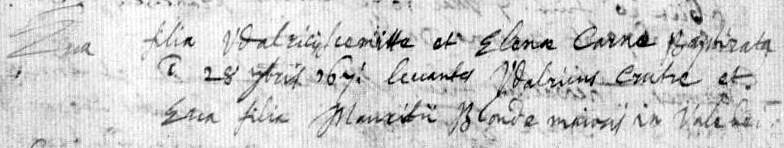 Eva filia Vdalricij semitte et Elena Carne Baptizata
28 7bris 1671 levantes Vdalricus Cruitre et
Eva filia Mauritii Blonde maioris in Vale